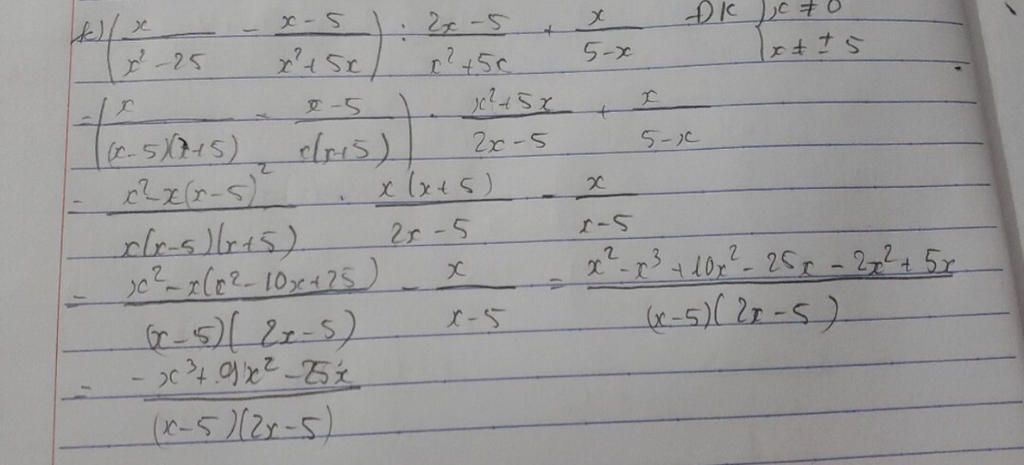 k) (x/(x²-25) - (x-5)/(x²+5x)) : (2x-5)/(x²+5x) + x/(5-x) ĐK { x ≠ 0
x ≠ ± 5
= (x/((x-5)(x+5)) - (x-5)/(x(x+5))) . (x²+5x)/(2x-5) + x/(5-x)
= (x²-x(x-5)²)/(x(x-5)(x+5)) . (x(x+5))/(2x-5) - x/(x-5)
= (x²-x(x²-10x+25))/((x-5)(2x-5)) - x/(x-5) = (x²-x³+10x²-25x-2x²+5x)/((x-5)(2x-5))
= (-x³+9x²-25x)/((x-5)(2x-5))